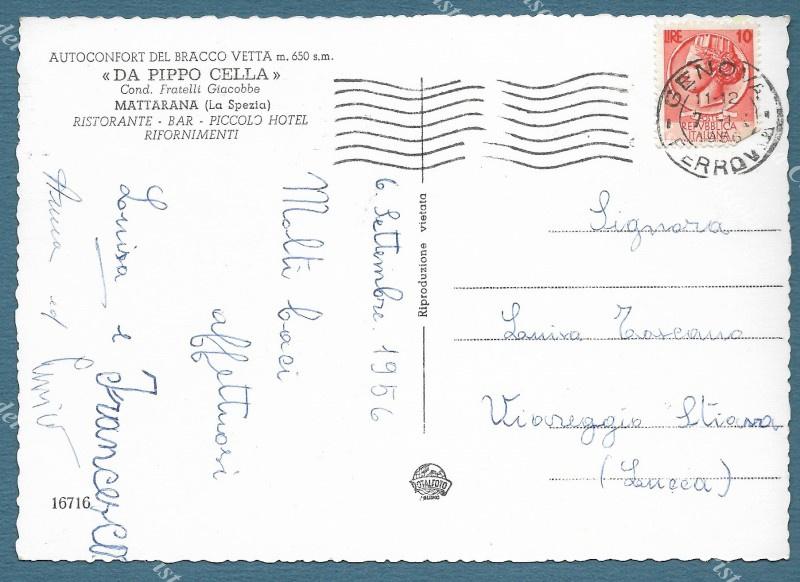 AUTOCONFORT DEL BRACCO VETTA m. 650 s.m.
« DA PIPPO CELLA »
Cond. Fratelli Giacobbe
MATTARANA (La Spezia)
RISTORANTE - BAR - PICCOLO HOTEL
RIFORNIMENTI
LIRE 10
REPVBBLICA
ITALIANA
GENOVA
11-12
1956
FERROVIA
6. Settembre. 1956
Molti baci
affettuosi
Luisa e Francesco
Anna ed
Riproduzione vietata
Signora
Luisa Toscano
Viareggio Stiava
(Lucca)
ITALFOTO
16716